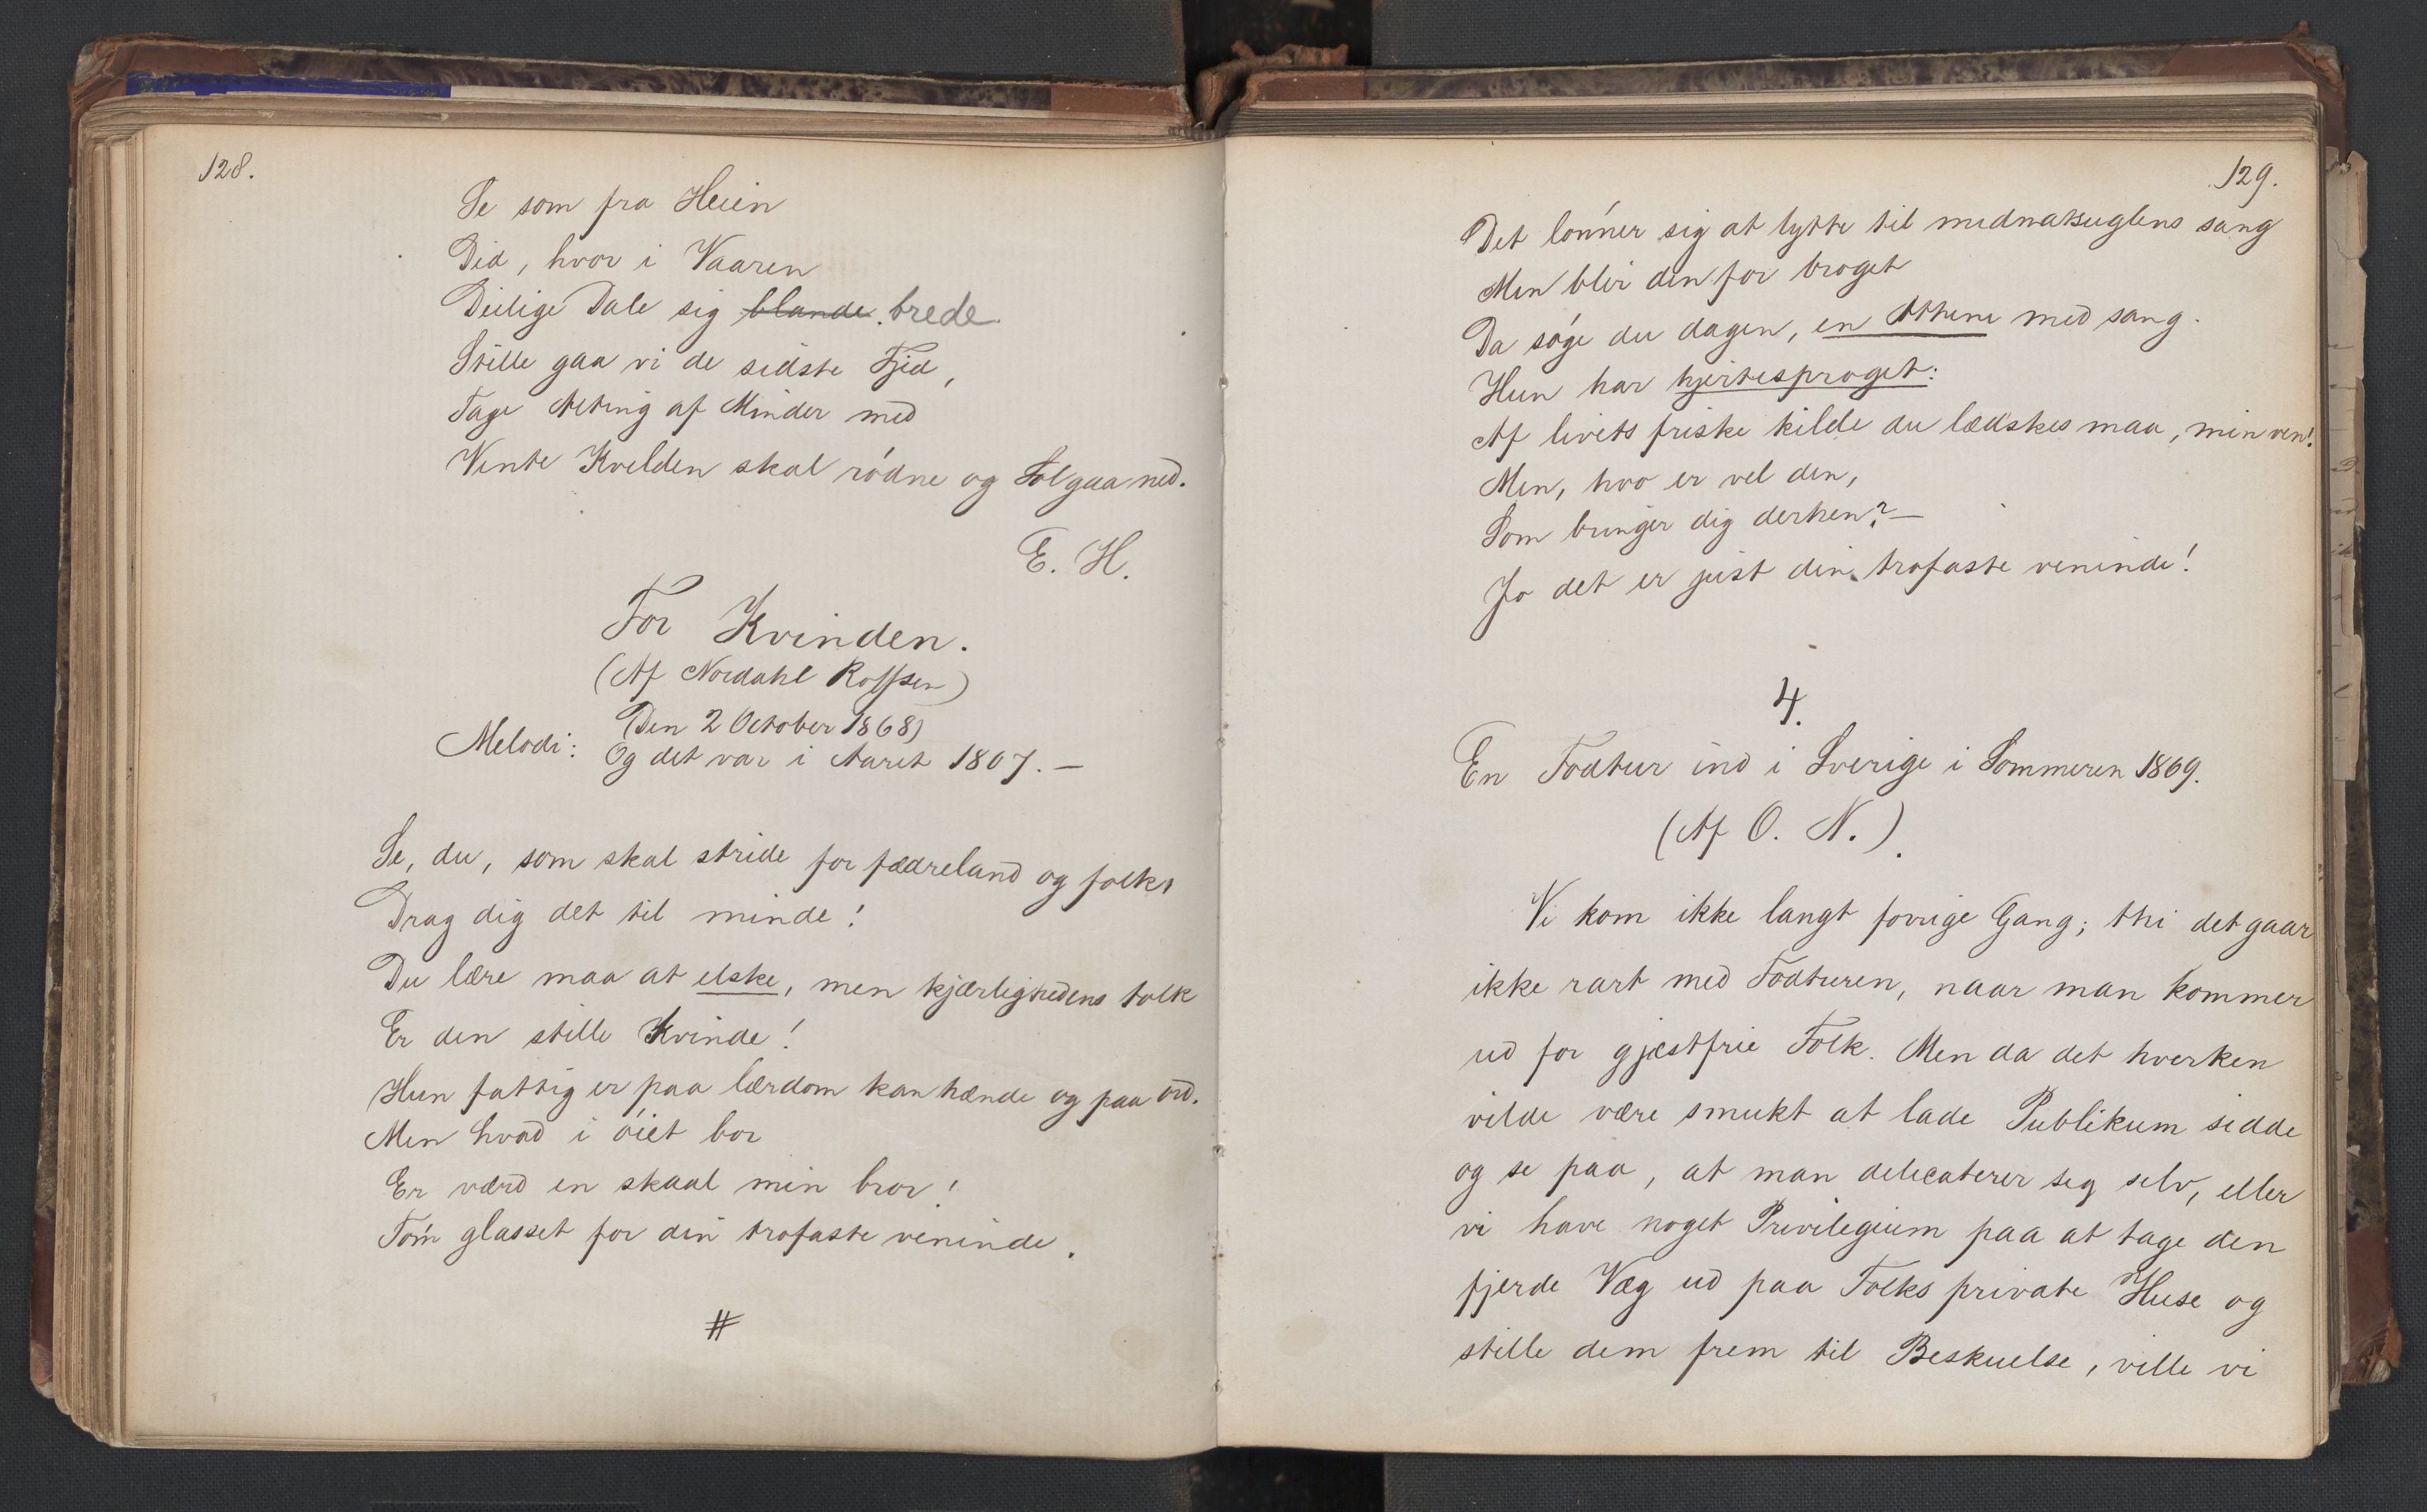 128.
Se som fra Heien
Did, hvor i Vaaren
Deilige Dale sig ~~blande~~ brede.
Stille gaa vi de sidste Fjed,
Tage Alting af Minder med
Vente Kvelden skal rødne og Sol gaa ned.
E. H.
For Kvinden.
(Af Nordahl Rolfsen)
(Den 2 October 1868)
Melodi: Og det var i Aaret 1807. —
Se, du, som skal stride for fædreland og folk,
Drag dig det til minde!
Du lære maa at elske, men kjærlighedens tolk
Er den stille Kvinde!
Hun fattig er paa lærdom kanhænde og paa ord.
Men hvad i øiet bor
Er værd en skaal min bror!
Tøm glasset for din trofaste veninde.
#
129.
Det lønner sig at lytte til midnatsuglens sang
Men blir den for broget
Da søge du dagen, en Athene med sang.
Hun har hjertesproget:
Af livets friske kilde du lædskes maa, min ven!
Men, hvo er vel den,
Som bringer dig derhen? —
Jo det er just din trofaste veninde!
4.
En Fodtur ind i Sverige i Sommeren 1869.
(Af O. N.).
Vi kom ikke langt forrige Gang; thi det gaar
ikke rart med Fodturen, naar man kommer
ud for gjæstfrie Folk. Men da det hverken
vilde være smukt at lade Publikum sidde
og se paa, at man delicaterer seg selv, eller
vi have noget Privilegium paa at tage den
fjerde Væg ud paa Folks private Huse og
stille dem frem til Beskuelse, ville vi